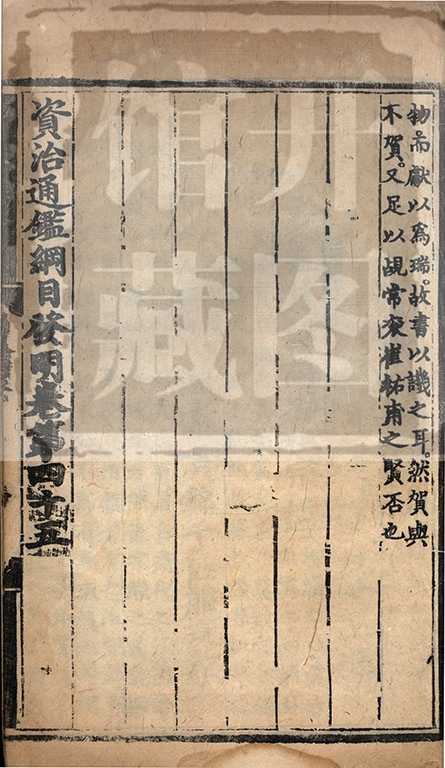 物而獻以為瑞故書以譏之耳然賀與
不賀又足以覘常袞崔祐甫之賢否也
資治通鑑綱目發明卷第四十五
开图
馆藏